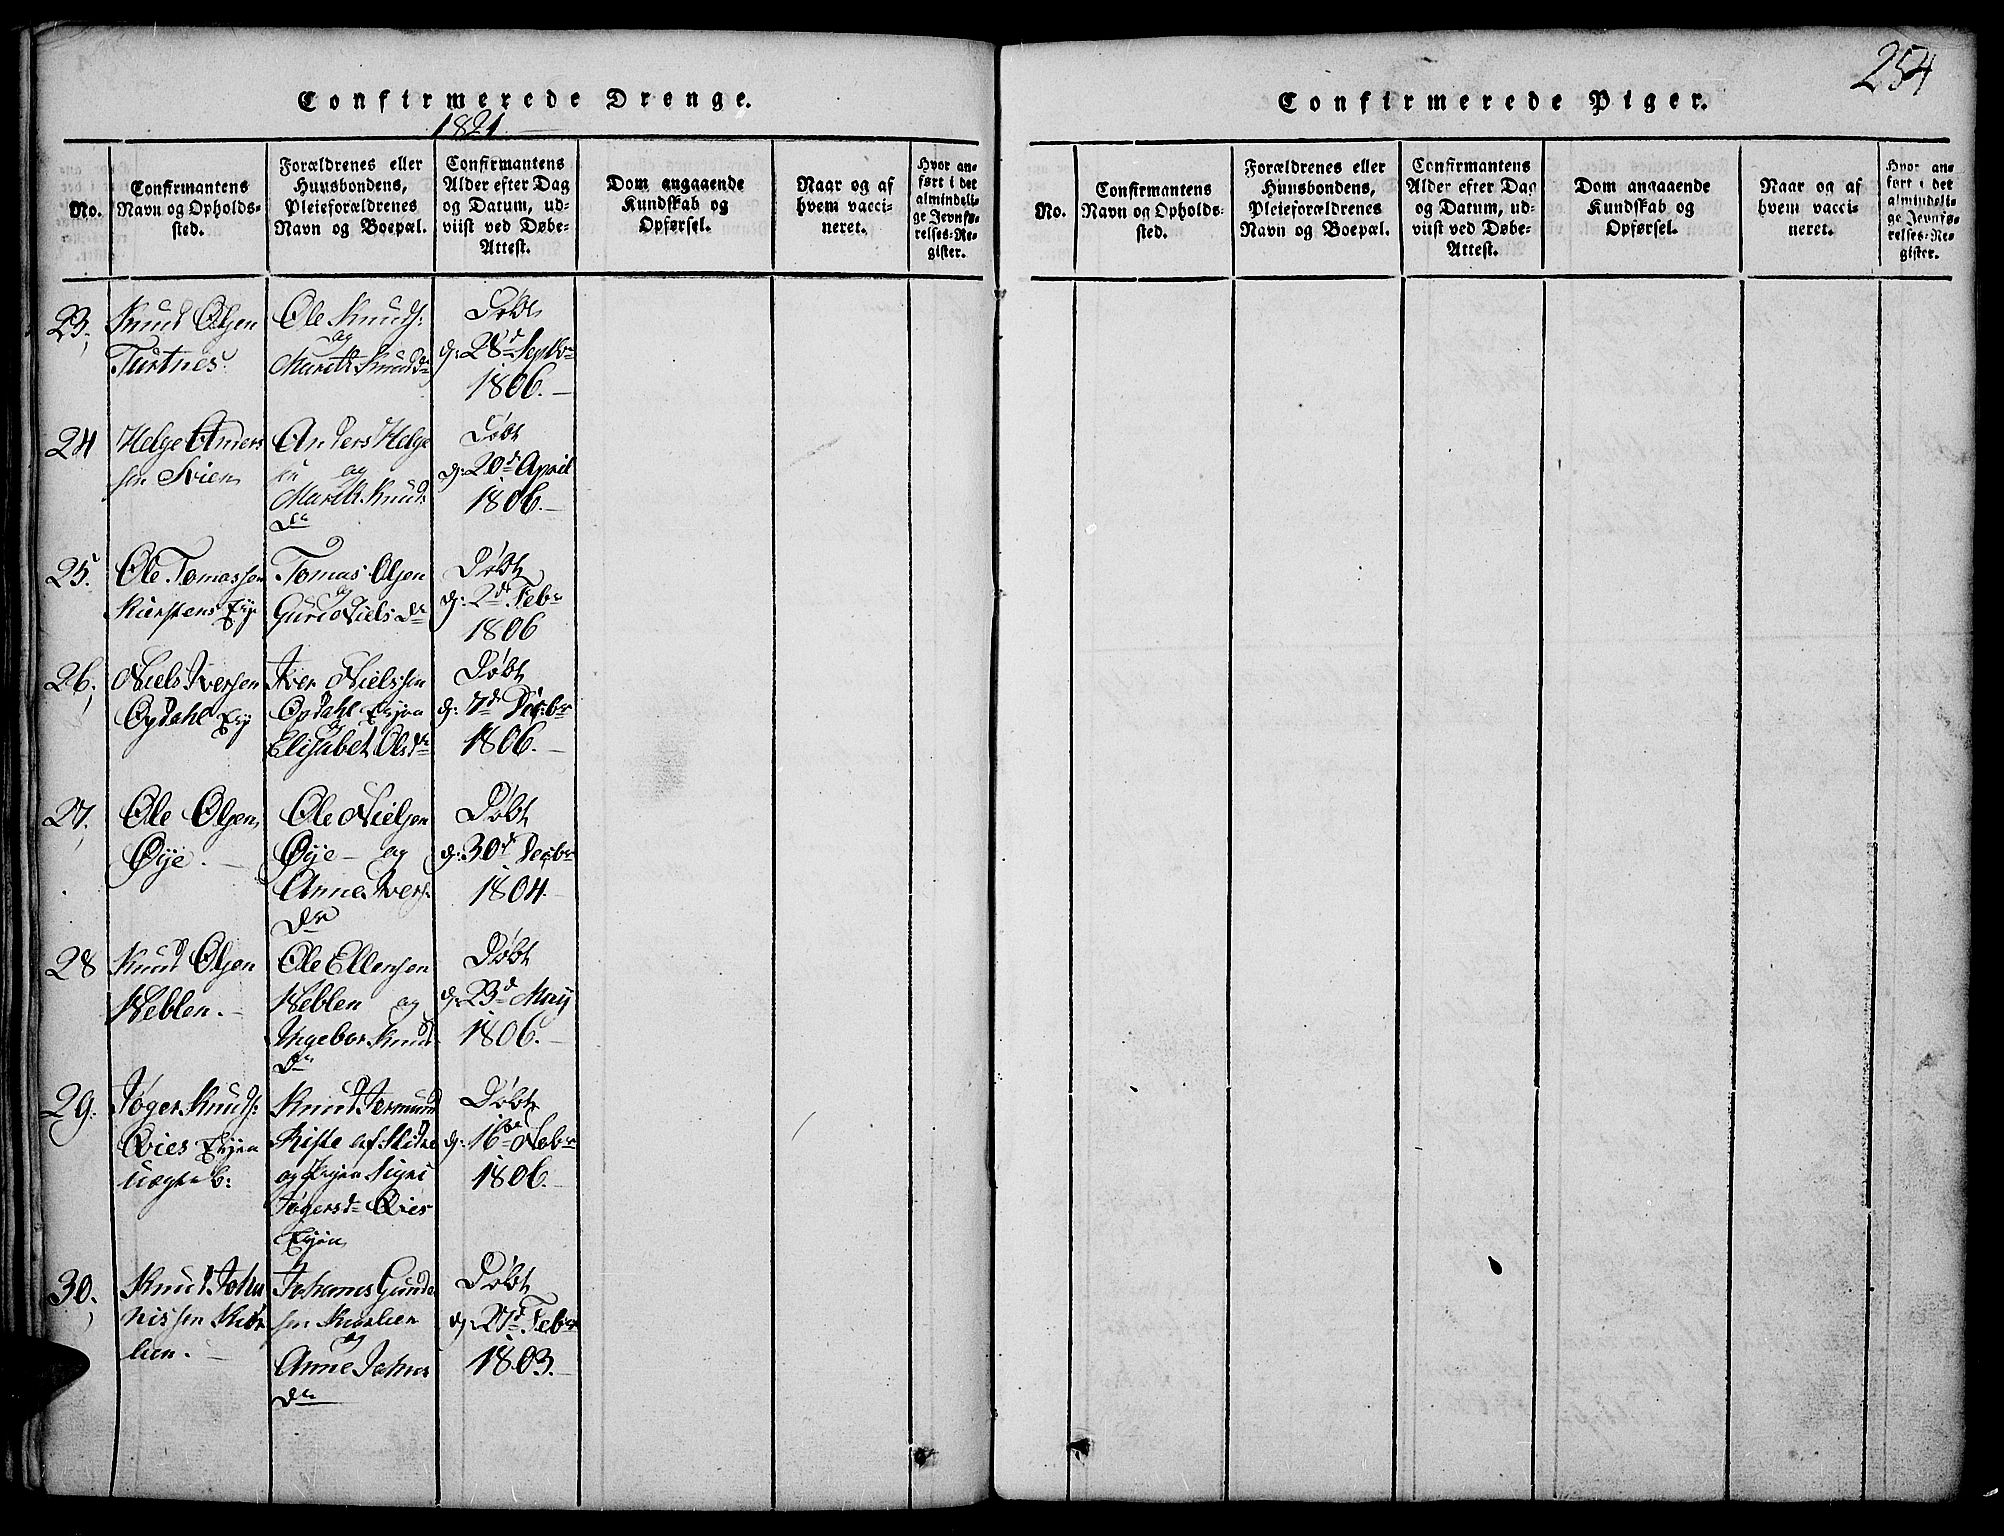 254
Confirmerede Drenge.
1821.
No.
Confirmantens
Navn og Opholds-
sted.
Forældrenes eller
Huusbondens,
Pleieforældrenes
Navn og Boepæl.
Confirmantens
Alder efter Dag
og Datum, ud-
viist ved Døbe-
Attest.
Dom angaaende
Kundskab og
Opførsel.
Naar og af
hvem vacci-
neret.
Hvor an-
ført i det
almindeli-
ge Jevnfø-
relses-Re-
gister.
23.
Knud Olsen
Turtnes.
Ole Knuds:
og
Marith Knudsdr
Døbt
d: 28d Septbr
1806.
24
Helge Anders
sen Svien
Anders Helge
sen og
Marith Knuds
dr
Døbt
d: 20d April
1806.
25.
Ole Tomassen
Kierstens Eye
Tomas Olsen
og
Guri Nielsdr
Døbt
d: 2d Febr
1806
26.
Niels Iversen
Opdahl Eye
Iver Nielssen
Opdahl Eyen
og
Elisabet Olsdr
Døbt
d: 7d Decbr
1806.
27.
Ole Olsen
Øye.
Ole Nielsen
Øye og
Anne Ivers
dr
Døbt
d: 30d Decbr
1804.
28
Knud Olsen
Heblen.
Ole Ellensen
Heblen og
Ingebor Knuds
dr
Døbt
d: 23d May
1806.
29.
Jøger Knuds:
Qvies Eyen
uægte b:
Knud Jermund
af
og Pigen Signi
Jøgersdr Qvies
Eyen
Døbt
d: 16de Nobr
1806.
30.
Knud Joha
nissen Skør
lien.
Johannes Gunde
sen Skørlien
og
Anne Johns
dr
Døbt
d: 27d Febr
1803.
Confirmerede Piger.
No.
Confirmantens
Navn og Opholds-
sted.
Forældrenes eller
Huusbondens,
Pleieforældrenes
Navn og Boepæl.
Confirmantens
Alder efter Dag
og Datum, ud-
viist ved Døbe-
Attest.
Dom angaaende
Kundskab og
Opførsel.
Naar og af
hvem vacci-
neret.
Hvor an-
ført i det
almindeli-
ge Jevnfø-
relses-Re-
gister.